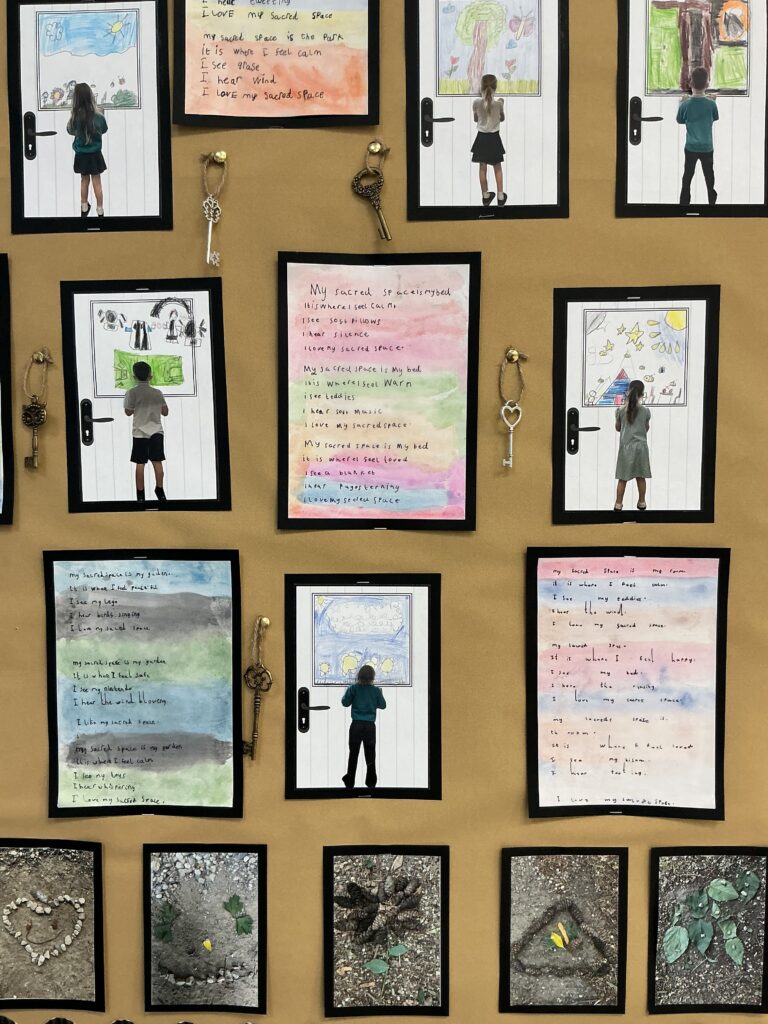 I hear tweeting
I LOVE my sacred space
my sacred space is the Park
it is where I feel calm
I see grase
I hear wind
I LOVE my sacred space
My sacred space is my bed
It is where I feel calm
I see soft pillows
I hear silence
I love my sacred space.
My sacred space is My bed
this is where I feel Warm
i see teddies
I hear soft music
I love my sacred space.
My sacred space is My bed
it is where I feel loved
i see a blanket
i hear
i love my space
my sacred space is my garden.
it is when I feel peaceful
I see my lego
I hear birds singing
I love my sacred space
my sacred space is my garden
It is when I feel safe
I see my nintendo
I hear the wind blowing
I like my sacred space
my sacred space is my garden
this is where I feel calm
I see my toys
I hear whispering
I love my sacred space.
my sacred space is my room
it is where I feel calm.
I see my teddies.
I hear the wind.
I love my sacred space.
my space.
It is where I feel happy.
I see my bed.
I hear the
I love my space
my space is
is where I feel
I see my
I hear
I love my space.